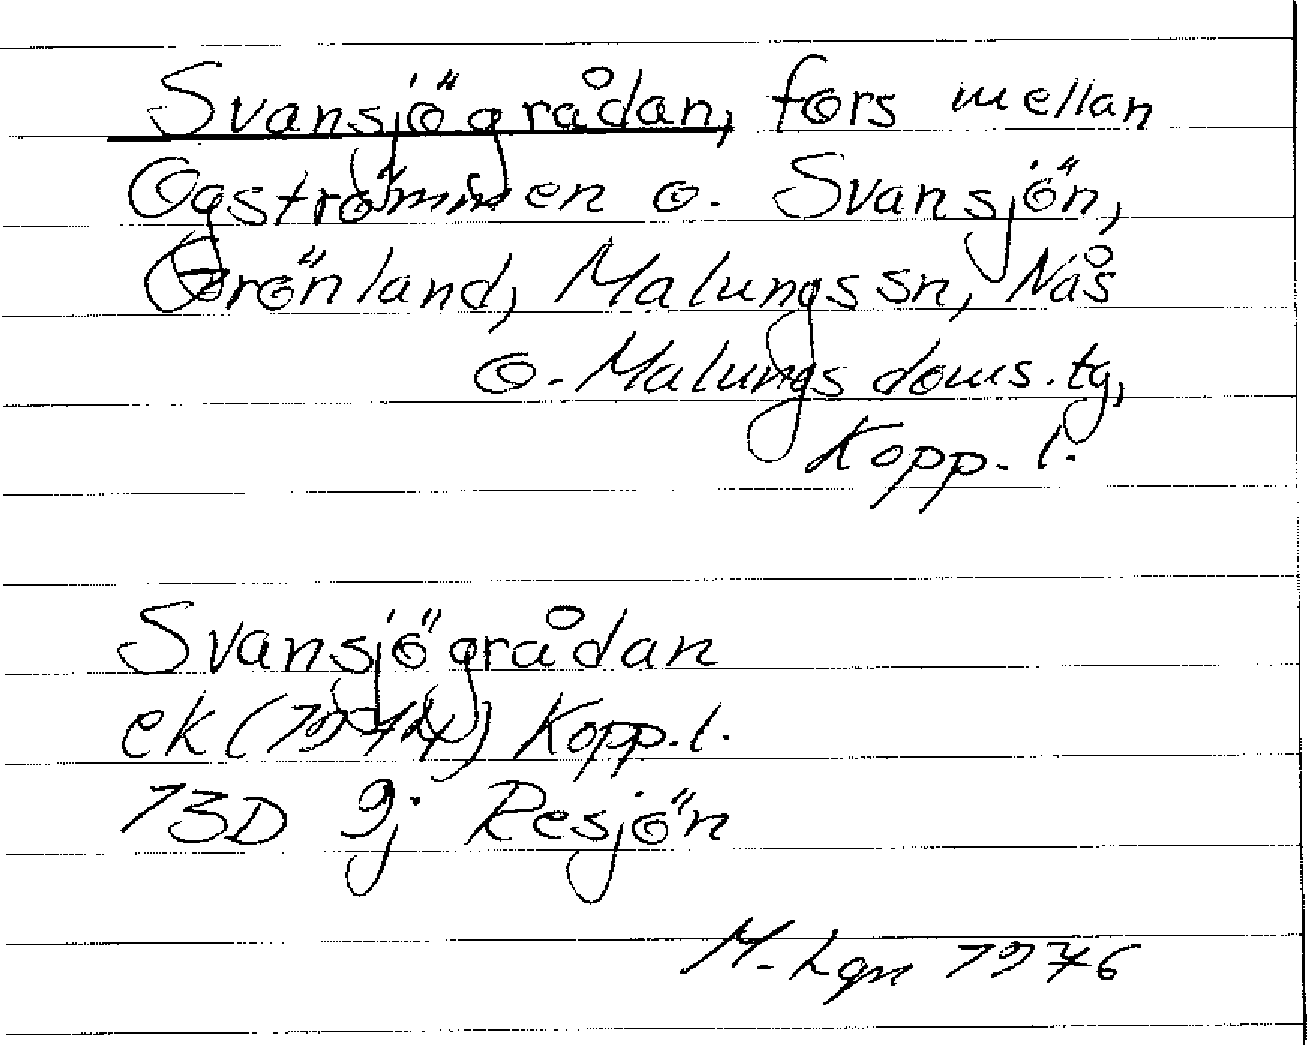 Svansjögrådan, fors mellan
Ogströmmen o. Svansjön,
Grönland, Malungs sn, Nås
o. Malungs doms. tg,
Kopp. l.
Svansjögrådan
ek (1974) Kopp. l.
13D 9j Resjön
M. Lgn 1976